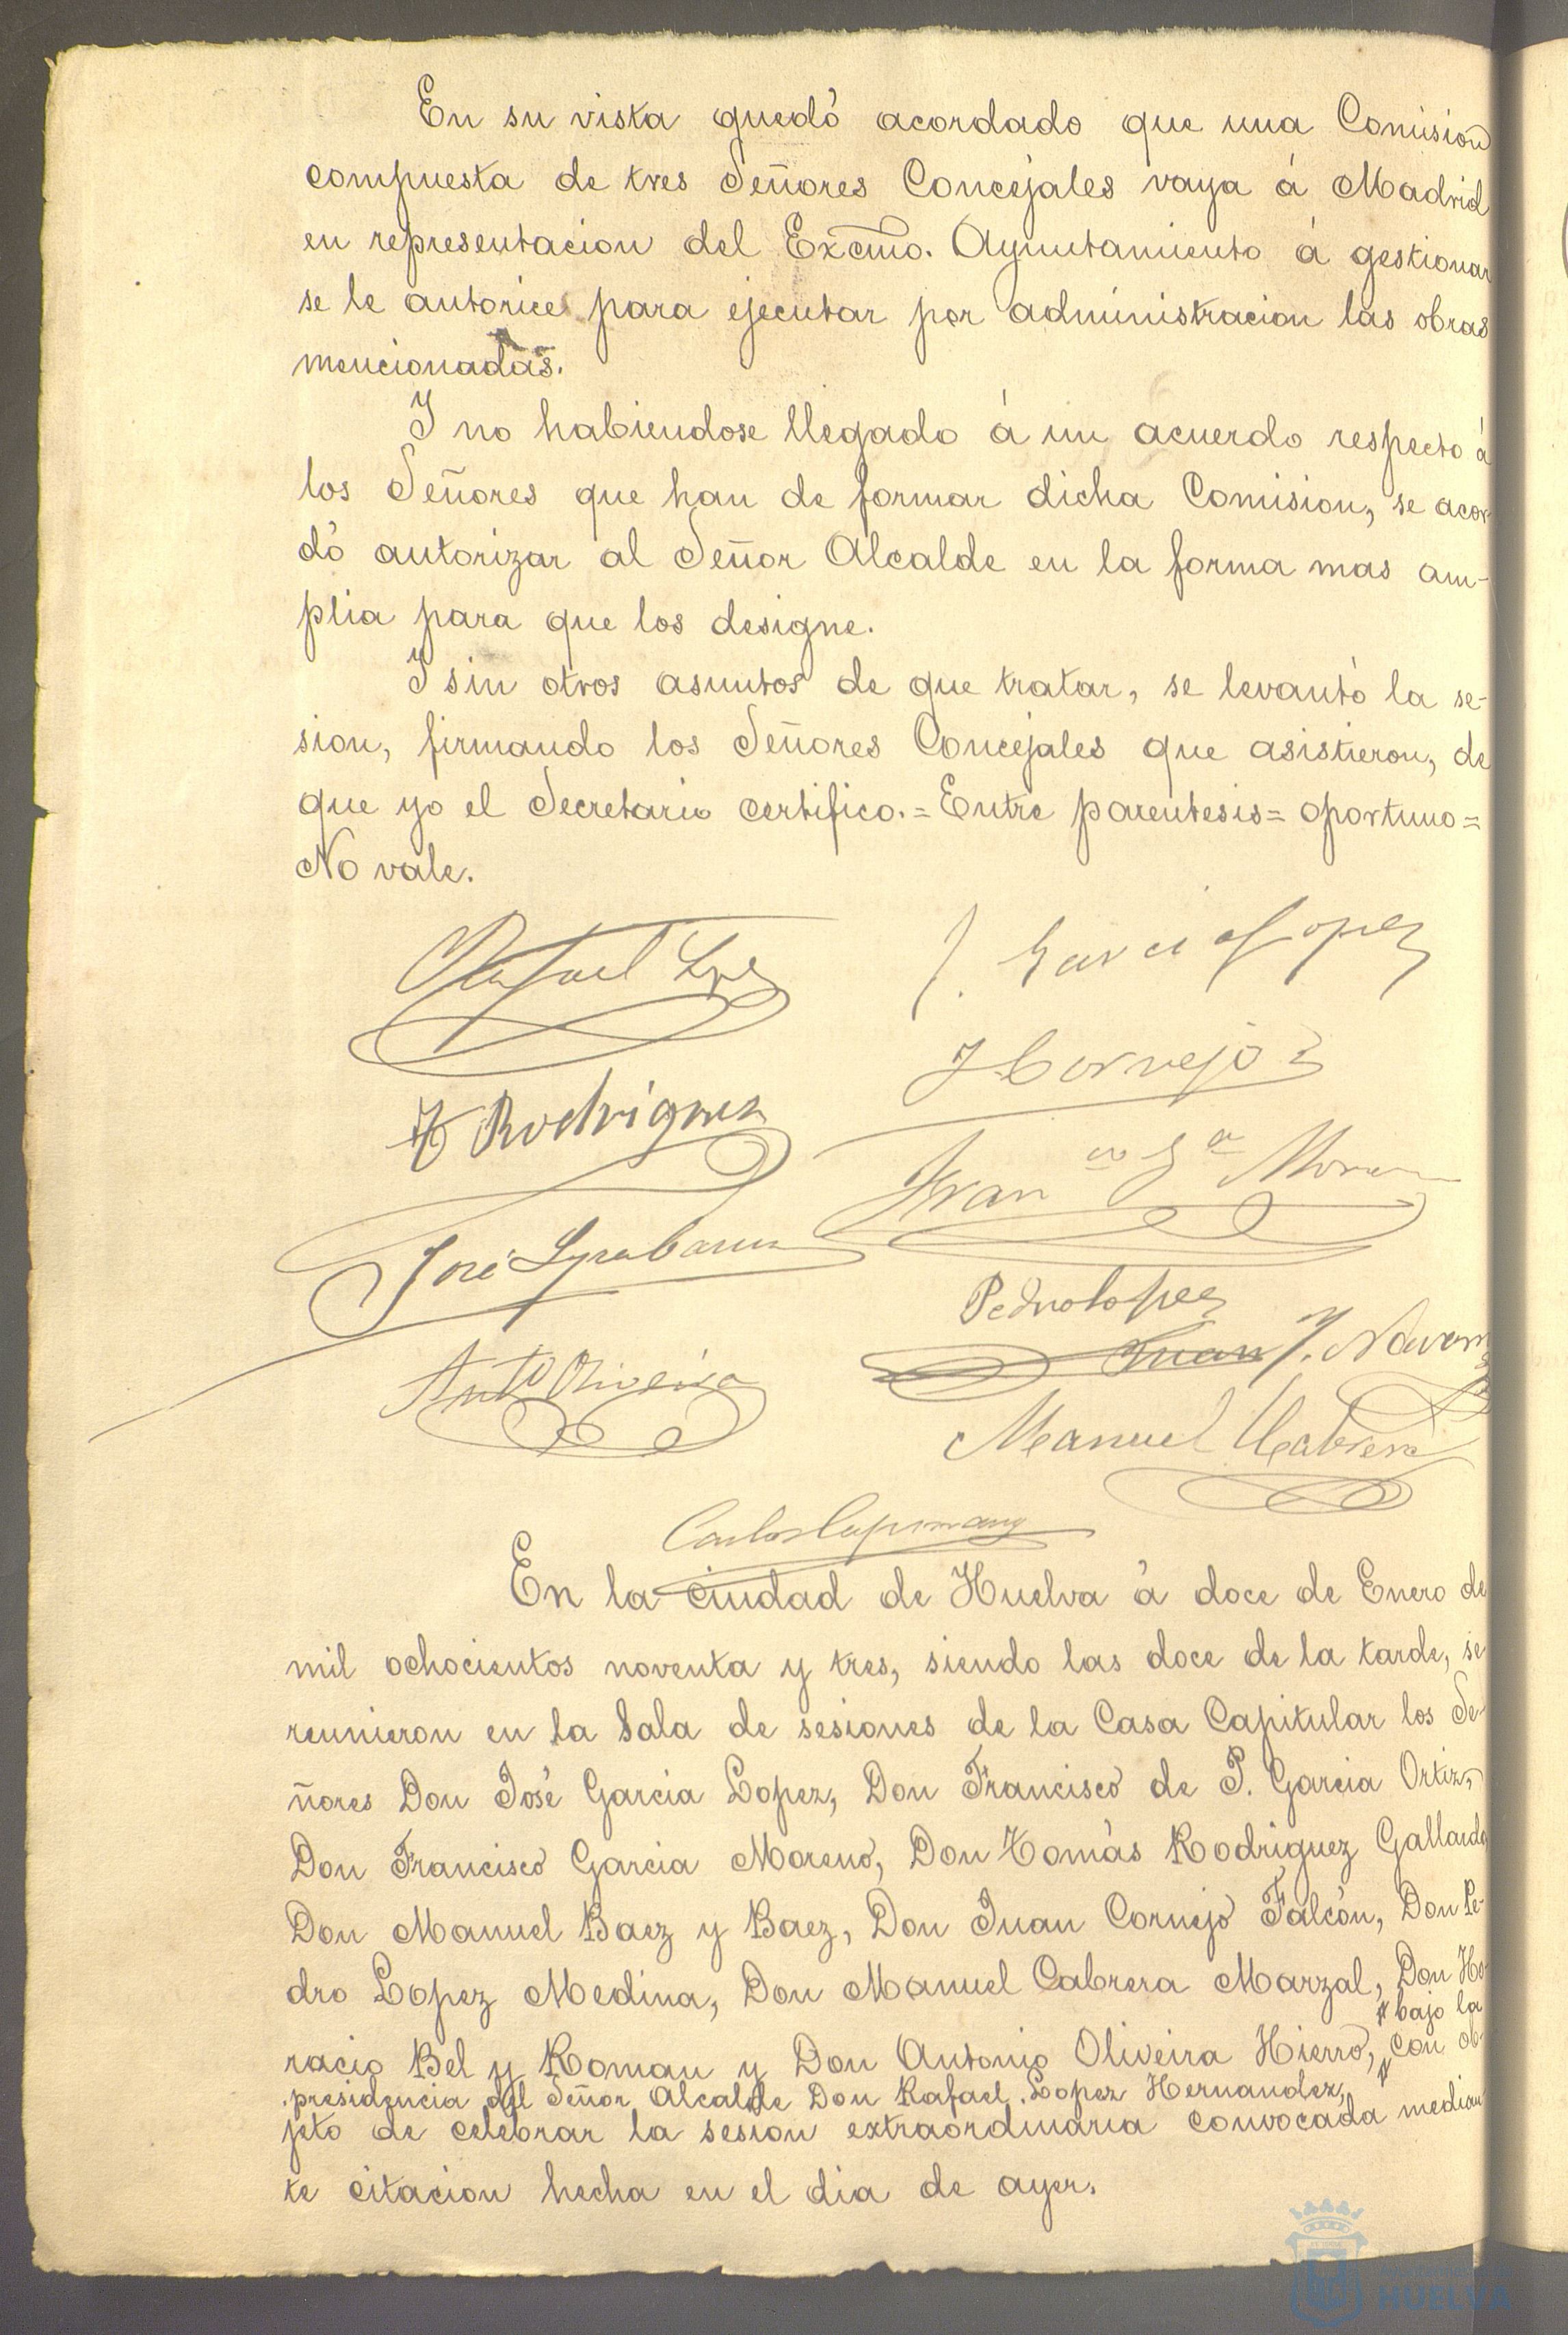 En su vista quedó acordado que una Comision
compuesta de tres Señores Concejales vaya á Madrid
en representacion del Excmo. Ayuntamiento á gestionar
se le autorice para ejecutar por administracion las obras
mencionadas.
Y no habiendose llegado á un acuerdo respecto á
los Señores que han de formar dicha Comision, se acor
dó autorizar al Señor Alcalde en la forma mas am-
plia para que los designe.
Y sin otros asuntos de que tratar, se levantó la se-
sion, firmando los Señores Concejales que asistieron, de
que yo el Secretario certifico.=Entre parentesis=oportuno=
No vale.
Rafael Lpz
J. Garcia Lopez
J Cornejo
T Rodriguez
Fran co Ga Moreno
José
Pedro Lopez
Juan J. Navarro
Anto Oliveira
Manuel Cabrera
Carlos
En la ciudad de Huelva á doce de Enero de
mil ochocientos noventa y tres, siendo las doce de la tarde, se
reunieron en la Sala de sesiones de la Casa Capitular los Se-
ñores Don José Garcia Lopez, Don Francisco de P. Garcia Ortiz,
Don Francisco Garcia Moreno, Don Tomás Rodriguez Gallardo
Don Manuel Baez y Baez, Don Juan Cornejo Falcón, Don Pe-
dro Lopez Medina, Don Manuel Cabrera Marzal, Don Ho-
bajo la
racio Bel y Roman y Don Antonio Oliveira Hierro, con ob-
presidencia del Señor Alcalde Don Rafael Lopez Hernandez,
jeto de celebrar la sesion extraordinaria convocada median
te citacion hecha en el dia de ayer.
HUELVA